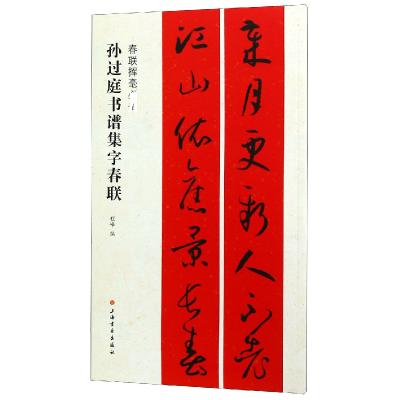 歲月更新人不老
江山依舊景長春
春联挥毫
孙过庭书谱集字春联
程峰 编
上海書画出版社